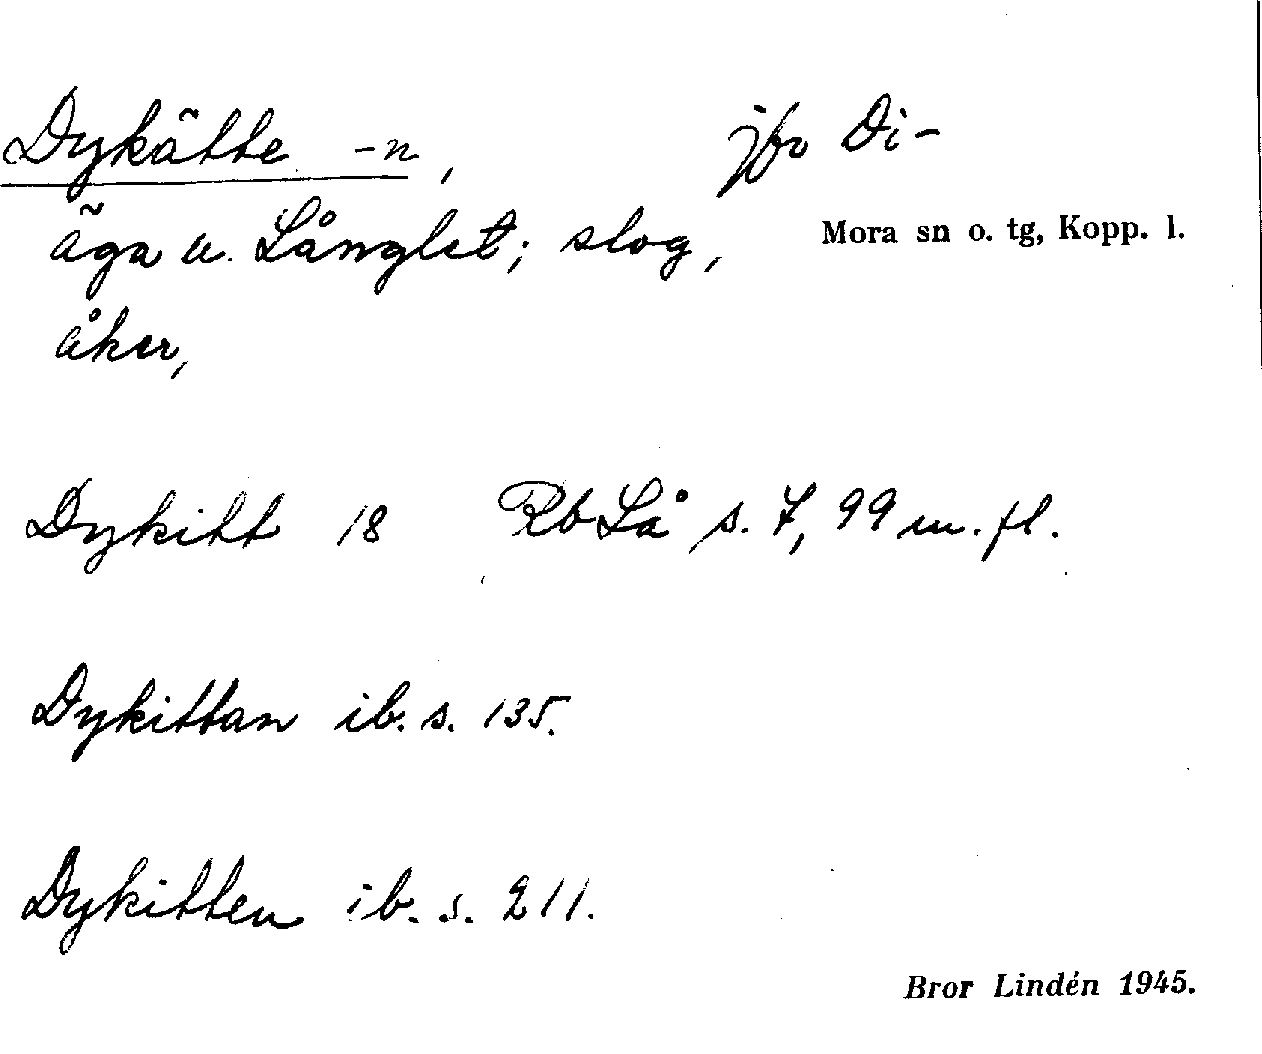 Dykätte -n, jfr Di-
äga u. Långlet; slog,
Mora sn o. tg, Kopp. l.
åker,
Dykitt 18 Rb Lå s. 7, 99 m. fl.
Dykittan ib. s. 135.
Dykitten ib. s. 211.
Bror Lindén 1945.